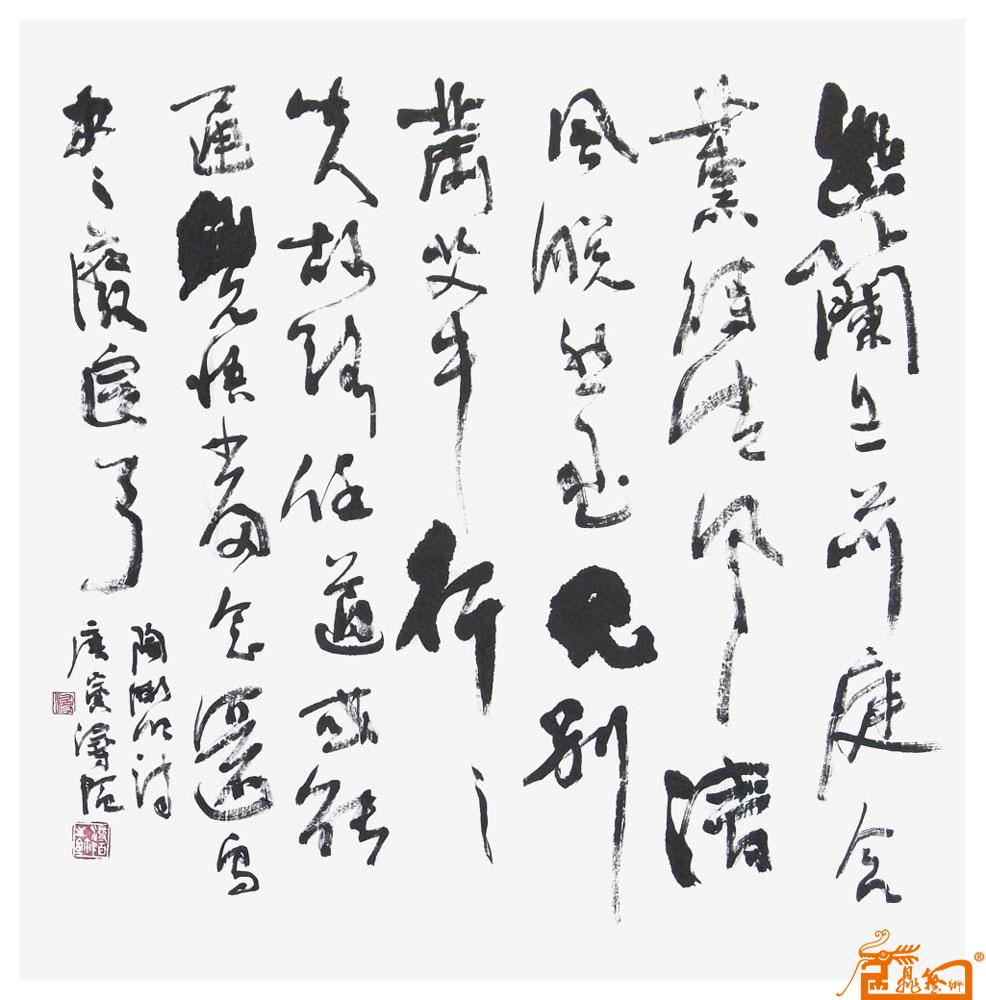 幽蘭生前庭含
薰待清風清
風脫然至見別
蕭艾中行〻
失故路任道或能
通覺悟當念還鳥
尽廢良弓
陶淵明詩
庚寅濤